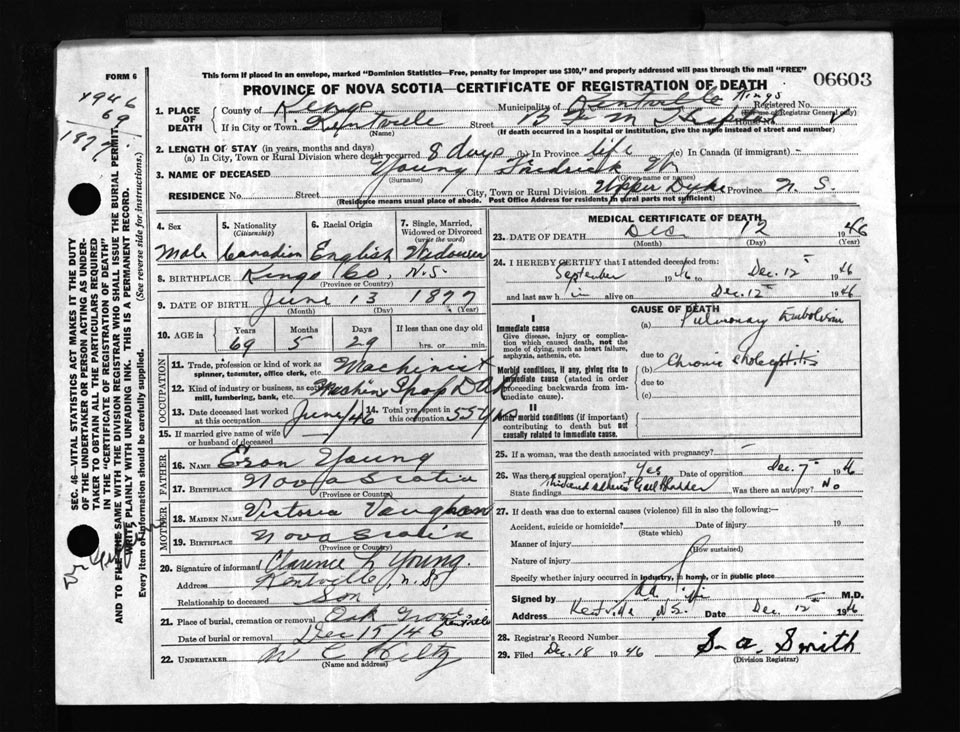 FORM 6
This form if placed in an envelope, marked "Dominion Statistics—Free, penalty for improper use $300," and properly addressed will pass through the mail "FREE"
06603
PROVINCE OF NOVA SCOTIA—CERTIFICATE OF REGISTRATION OF DEATH
1946
69
1877
1. PLACE OF DEATH
County of Kings
Municipality of Kentville Kings
Registered No.
(For use of Registrar General only)
If in City or Town Kentville
(Name)
Street B F M Hospital
House No.
(If death occurred in a hospital or institution, give the name instead of street and number)
2. LENGTH OF STAY (in years, months and days)
(a) In City, Town or Rural Division where death occurred 8 days (b) In Province life (c) In Canada (if immigrant)
3. NAME OF DECEASED Young Fredrick
(Surname) (Given name or names)
RESIDENCE No. Street City, Town or Rural Division Upper Dyke Province N. S.
(Residence means usual place of abode. Post Office Address for residents in rural parts not sufficient)
4. Sex
Male
5. Nationality
(Citizenship)
Canadian
6. Racial Origin
English
7. Single, Married, Widowed or Divorced
(write the word)
Widower
8. BIRTHPLACE Kings Co, N.S.
(Province or Country)
9. DATE OF BIRTH June 13 1877
(Month) (Day) (Year)
10. AGE in
Years Months Days If less than one day old
69 5 29 hrs. or min.
OCCUPATION
11. Trade, profession or kind of work as spinner, teamster, office clerk, etc. Machinist
12. Kind of industry or business, as cotton mill, lumbering, bank, etc. Machine Shop D.A.R
13. Date deceased last worked at this occupation June/46
14. Total yrs. spent in this occupation 55 yrs
15. If married give name of wife or husband of deceased —
FATHER
16. NAME Eson Young
17. BIRTHPLACE Nova Scotia
(Province or Country)
MOTHER
18. MAIDEN NAME Victoria Vaughan
19. BIRTHPLACE Nova Scotia
(Province or Country)
20. Signature of informant Clarence L Young.
Address Kentville, N. S.
Relationship to deceased Son
21. Place of burial, cremation or removal Oak Grove Kentville
Date of burial or removal Dec 15/46
22. UNDERTAKER W C Hiltz
(Name and address)
MEDICAL CERTIFICATE OF DEATH
23. DATE OF DEATH Dec 12 1946
(Month) (Day) (Year)
24. I HEREBY CERTIFY that I attended deceased from:
September 1946 to Dec. 12th 1946
and last saw him alive on Dec. 12th 1946
CAUSE OF DEATH
I
Immediate cause
Give disease, injury or complication which caused death, not the mode of dying, such as heart failure, asphyxia, asthenia, etc.
(a) Pulmonary Embolism
due to
Morbid conditions, if any, giving rise to immediate cause (stated in order proceeding backwards from immediate cause).
(b) Chronic cholecystitis
due to
(c)
II
Other morbid conditions (if important) contributing to death but not causally related to immediate cause.
25. If a woman, was the death associated with pregnancy? —
26. Was there a surgical operation? Yes Date of operation Dec. 7th 1946
State findings Thickened adherent Gall Bladder Was there an autopsy? No
27. If death was due to external causes (violence) fill in also the following:—
Accident, suicide or homicide? Date of injury 19
(State which)
Manner of injury
(How sustained)
Nature of injury
Specify whether injury occurred in industry, in home, or in public place
Signed by M.D.
Address Kentville, N.S. Date Dec. 12th 1946
28. Registrar's Record Number
29. Filed Dec. 18 1946 S. A. Smith
(Division Registrar)
SEC. 46—VITAL STATISTICS ACT MAKES IT THE DUTY OF THE UNDERTAKER OR PERSON ACTING AS UNDERTAKER TO OBTAIN ALL THE PARTICULARS REQUIRED IN THE "CERTIFICATE OF REGISTRATION OF DEATH" AND TO FILE THE SAME WITH THE DIVISION REGISTRAR WHO SHALL ISSUE THE BURIAL PERMIT.
WRITE PLAINLY WITH UNFADING INK. THIS IS A PERMANENT RECORD.
Every item of information should be carefully supplied. (See reverse side for instructions.)